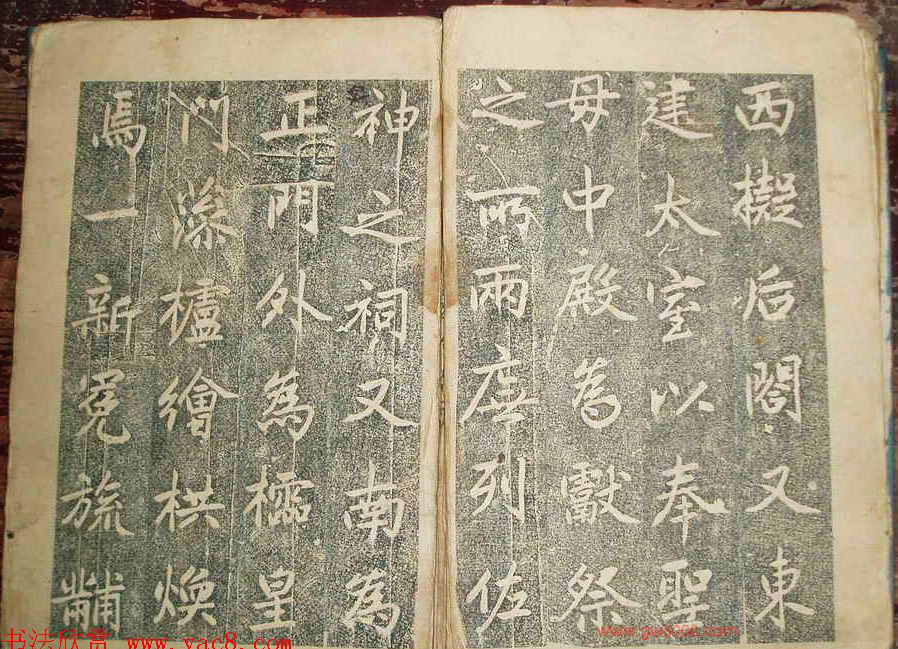 西擬后閣又東
建太室以奉聖
母中殿為獻祭
之所兩廡列佐
神之祠又南為
正門外為櫺星
門滌櫨繪栱煥
焉一新冕旒黼
书法欣赏 www.yac8.com
www.gw9000.com